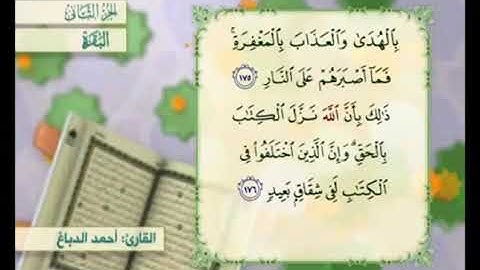 الجزء الثاني
البقرة
بِالْهُدَىٰ وَالْعَذَابَ بِالْمَغْفِرَةِ ۚ
فَمَا أَصْبَرَهُمْ عَلَى النَّارِ ١٧٥
ذَٰلِكَ بِأَنَّ اللَّهَ نَزَّلَ الْكِتَابَ
بِالْحَقِّ ۗ وَإِنَّ الَّذِينَ اخْتَلَفُوا فِي
الْكِتَابِ لَفِي شِقَاقٍ بَعِيدٍ ١٧٦
القارئ: أحمد الدباغ